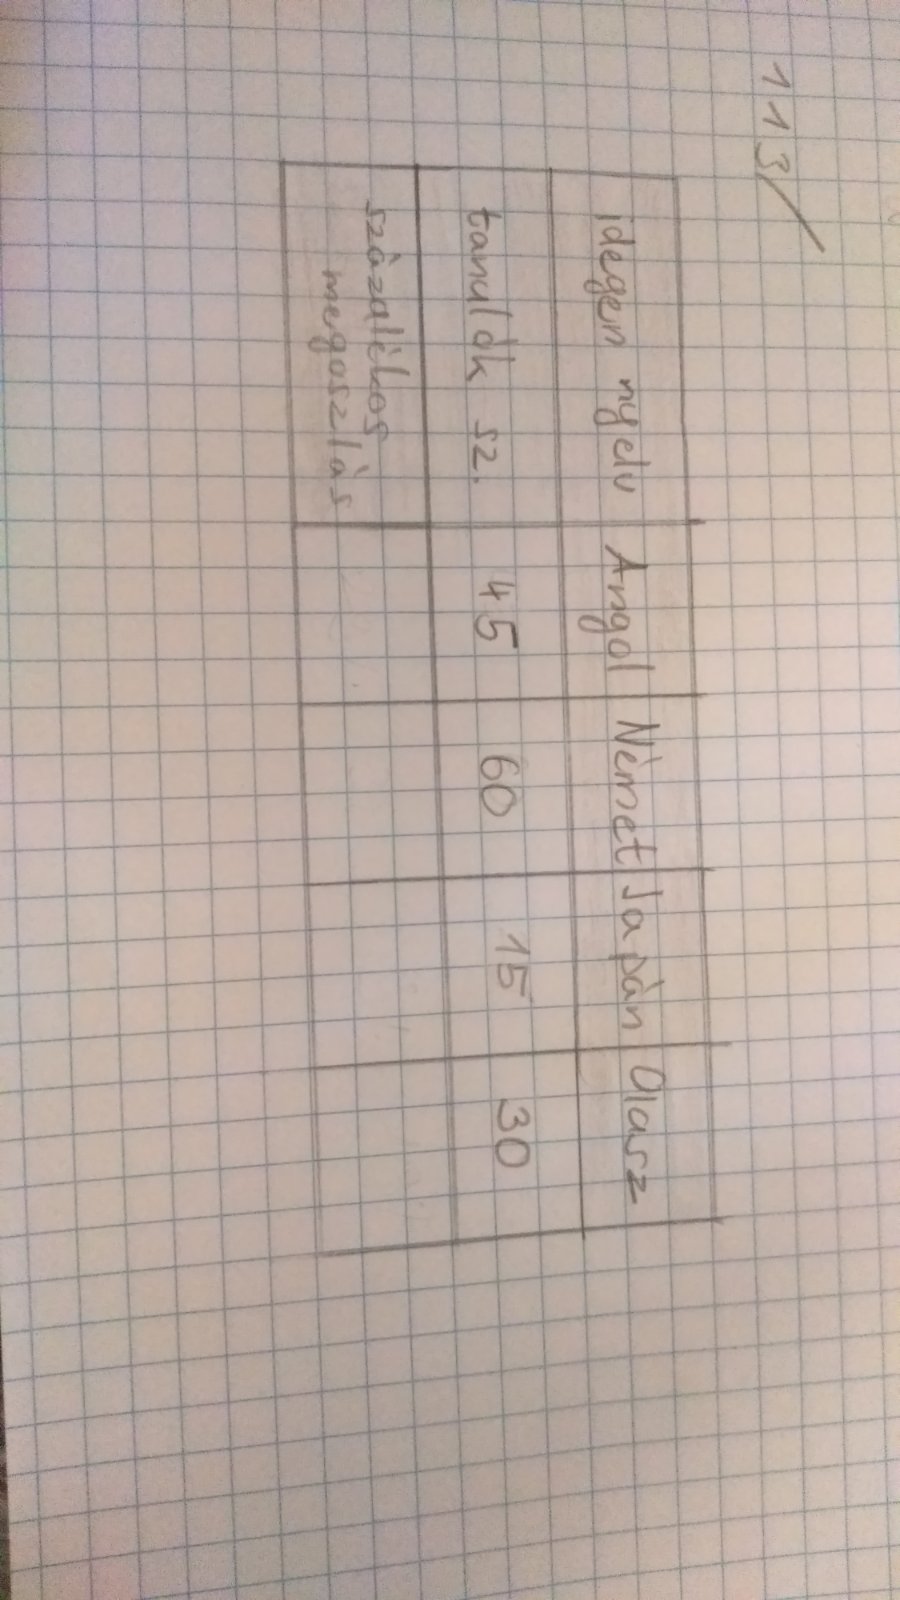 113/
idegen nyelv Angol Német Japán Olasz
tanulók sz. 45 60 15 30
százalékos
megoszlás